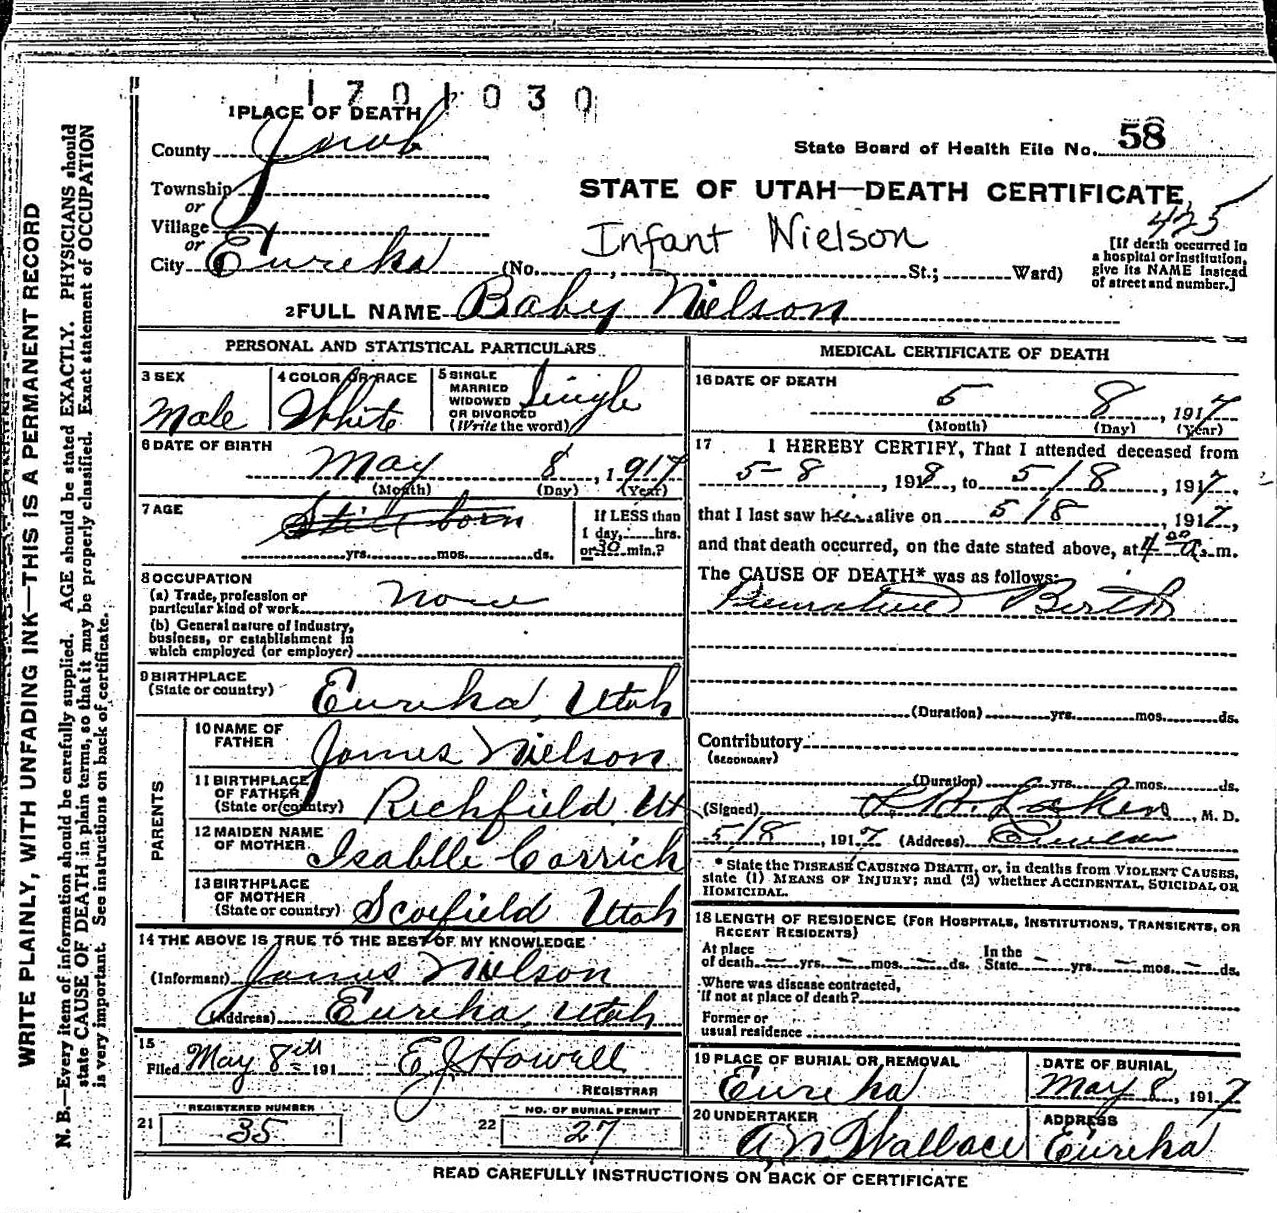 1701030
1 PLACE OF DEATH
County Juab
State Board of Health File No. 58
Township
or
Village
or
City Eureka (No. , St.; Ward)
STATE OF UTAH—DEATH CERTIFICATE
425
Infant Nielson
[If death occurred in
a hospital or institution,
give its NAME instead
of street and number.]
2 FULL NAME Baby Nielson
PERSONAL AND STATISTICAL PARTICULARS
3 SEX
Male
4 COLOR OR RACE
White
5 SINGLE
MARRIED
WIDOWED
OR DIVORCED
(Write the word)
Single
6 DATE OF BIRTH
May 8, 1917
(Month) (Day) (Year)
7 AGE
Still born
yrs. mos. ds.
If LESS than
1 day, hrs.
or 30 min.?
8 OCCUPATION
(a) Trade, profession or
particular kind of work None
(b) General nature of industry,
business, or establishment in
which employed (or employer)
9 BIRTHPLACE
(State or country) Eureka, Utah
PARENTS
10 NAME OF
FATHER James Nielson
11 BIRTHPLACE
OF FATHER
(State or country) Richfield Ut
12 MAIDEN NAME
OF MOTHER Isablle Carrick
13 BIRTHPLACE
OF MOTHER
(State or country) Scofield Utah
14 THE ABOVE IS TRUE TO THE BEST OF MY KNOWLEDGE
(Informant) James Nielson
(Address) Eureka, Utah
15
Filed May 8th 191 E J Howell
REGISTRAR
21 REGISTERED NUMBER
35
22 NO. OF BURIAL PERMIT
27
MEDICAL CERTIFICATE OF DEATH
16 DATE OF DEATH
5 8, 1917
(Month) (Day) (Year)
17 I HEREBY CERTIFY, That I attended deceased from
5-8, 1918, to 5/8, 1917,
that I last saw h alive on 5/8, 1917,
and that death occurred, on the date stated above, at 4 00 a. m.
The CAUSE OF DEATH* was as follows:
Premature Birth
(Duration) yrs. mos. ds.
Contributory
(SECONDARY)
(Duration) yrs. mos. ds.
(Signed) , M. D.
5/8, 1917 (Address) Eureka
* State the DISEASE CAUSING DEATH, or, in deaths from VIOLENT CAUSES,
state (1) MEANS OF INJURY; and (2) whether ACCIDENTAL, SUICIDAL OR
HOMICIDAL.
18 LENGTH OF RESIDENCE (FOR HOSPITALS, INSTITUTIONS, TRANSIENTS, OR
RECENT RESIDENTS)
At place
of death — yrs. — mos. — ds.
In the
State — yrs. — mos. — ds.
Where was disease contracted,
if not at place of death?
Former or
usual residence
19 PLACE OF BURIAL OR REMOVAL
Eureka
DATE OF BURIAL
May 8, 1917
20 UNDERTAKER
A N Wallace
ADDRESS
Eureka
READ CAREFULLY INSTRUCTIONS ON BACK OF CERTIFICATE
WRITE PLAINLY, WITH UNFADING INK—THIS IS A PERMANENT RECORD
N. B.—Every item of information should be carefully supplied. AGE should be stated EXACTLY. PHYSICIANS should
state CAUSE OF DEATH in plain terms, so that it may be properly classified. Exact statement of OCCUPATION
is very important. See instructions on back of certificate.